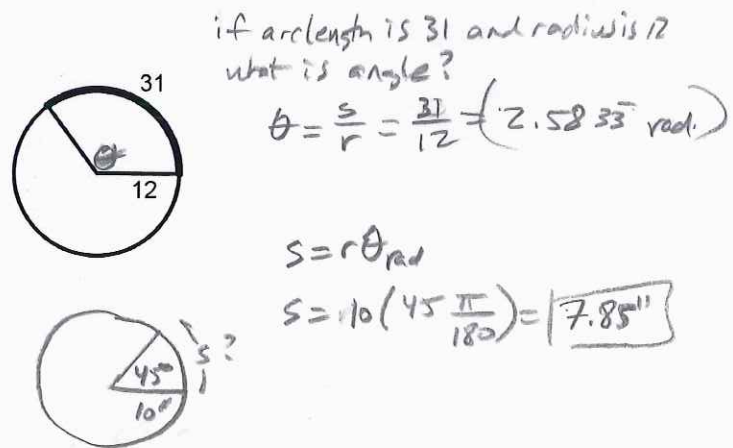 if arclength is 31 and radius is 12
what is angle?
31
θ
12
θ = s/r = 31/12 = (2.5833̅ rad.)
s = rθ rad
s = 10(45 π/180) = 7.85"
s?
45°
10"